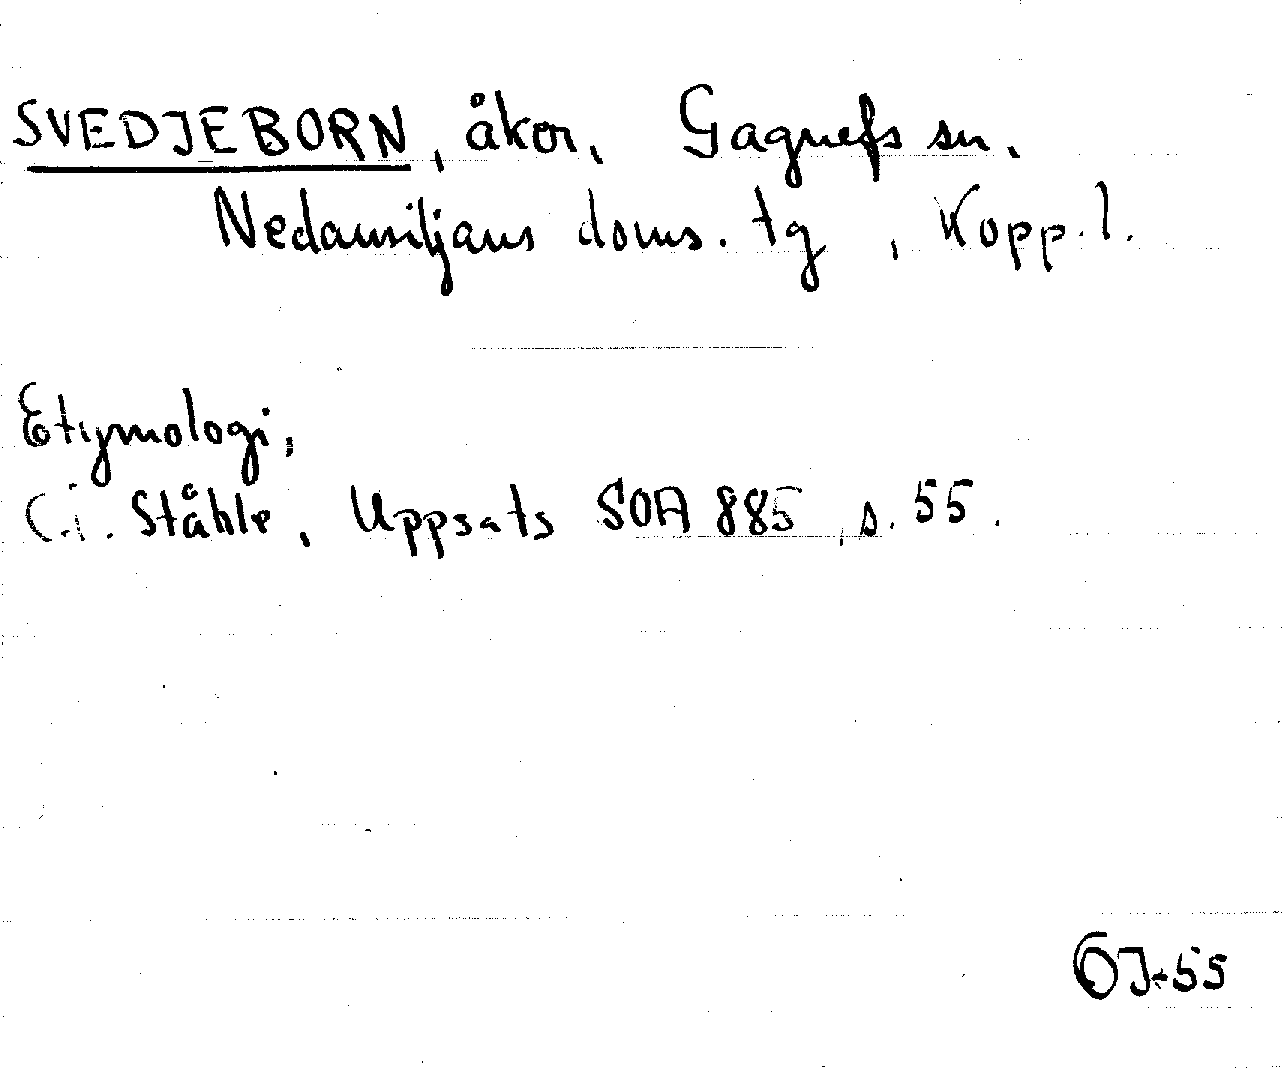 SVEDJEBORN, åker, Gagnefs sn.
Nedansiljans doms. tg, Kopp. l.
Etymologi,
C.I. Ståhle, Uppsats SOA 885, s. 55.
OJ-55